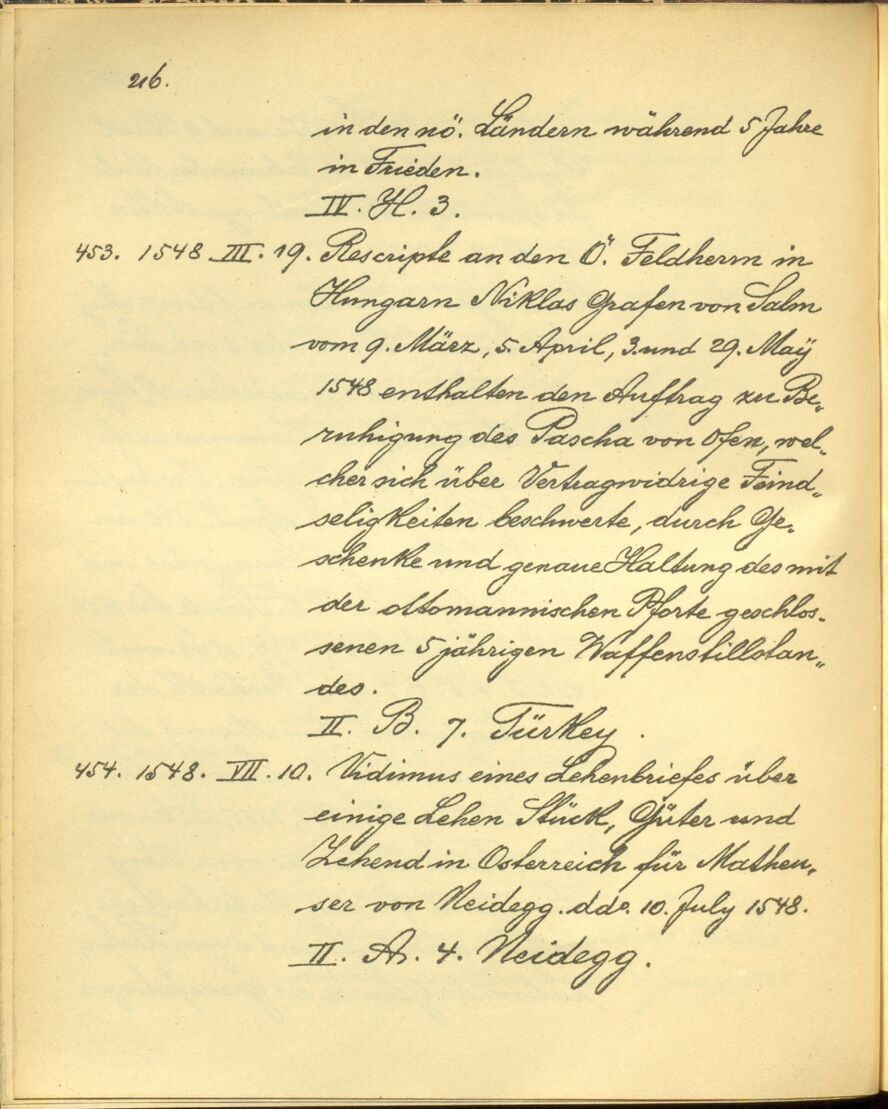 216.
in den nö. Ländern während 5 Jahre
in Frieden.
IV. H. 3.
453. 1548 III. 19. Rescripte an den Ö. Feldherrn in
Hungarn Niklas Grafen von Salm
vom 9. März, 5. April, 3. und 29. Maÿ
1548 enthalten den Auftrag zu Be„
ruhigung des Pascha von Ofen, wel„
cher sich über Vertragwidrige Feind„
seligkeiten beschwerte, durch Ge„
schenke und genaue Haltung des mit
der ottomannischen Pforte geschlos„
senen 5 jährigen Waffenstillstan„
des.
II. B. 7. Türkey.
454. 1548. VII. 10. Vidimus eines Lehenbriefes über
einige Lehen Stück, Güter und
Zehend in Osterreich für Matheu„
ser von Neidegg. ddo. 10. July 1548.
II. A. 4. Neidegg.